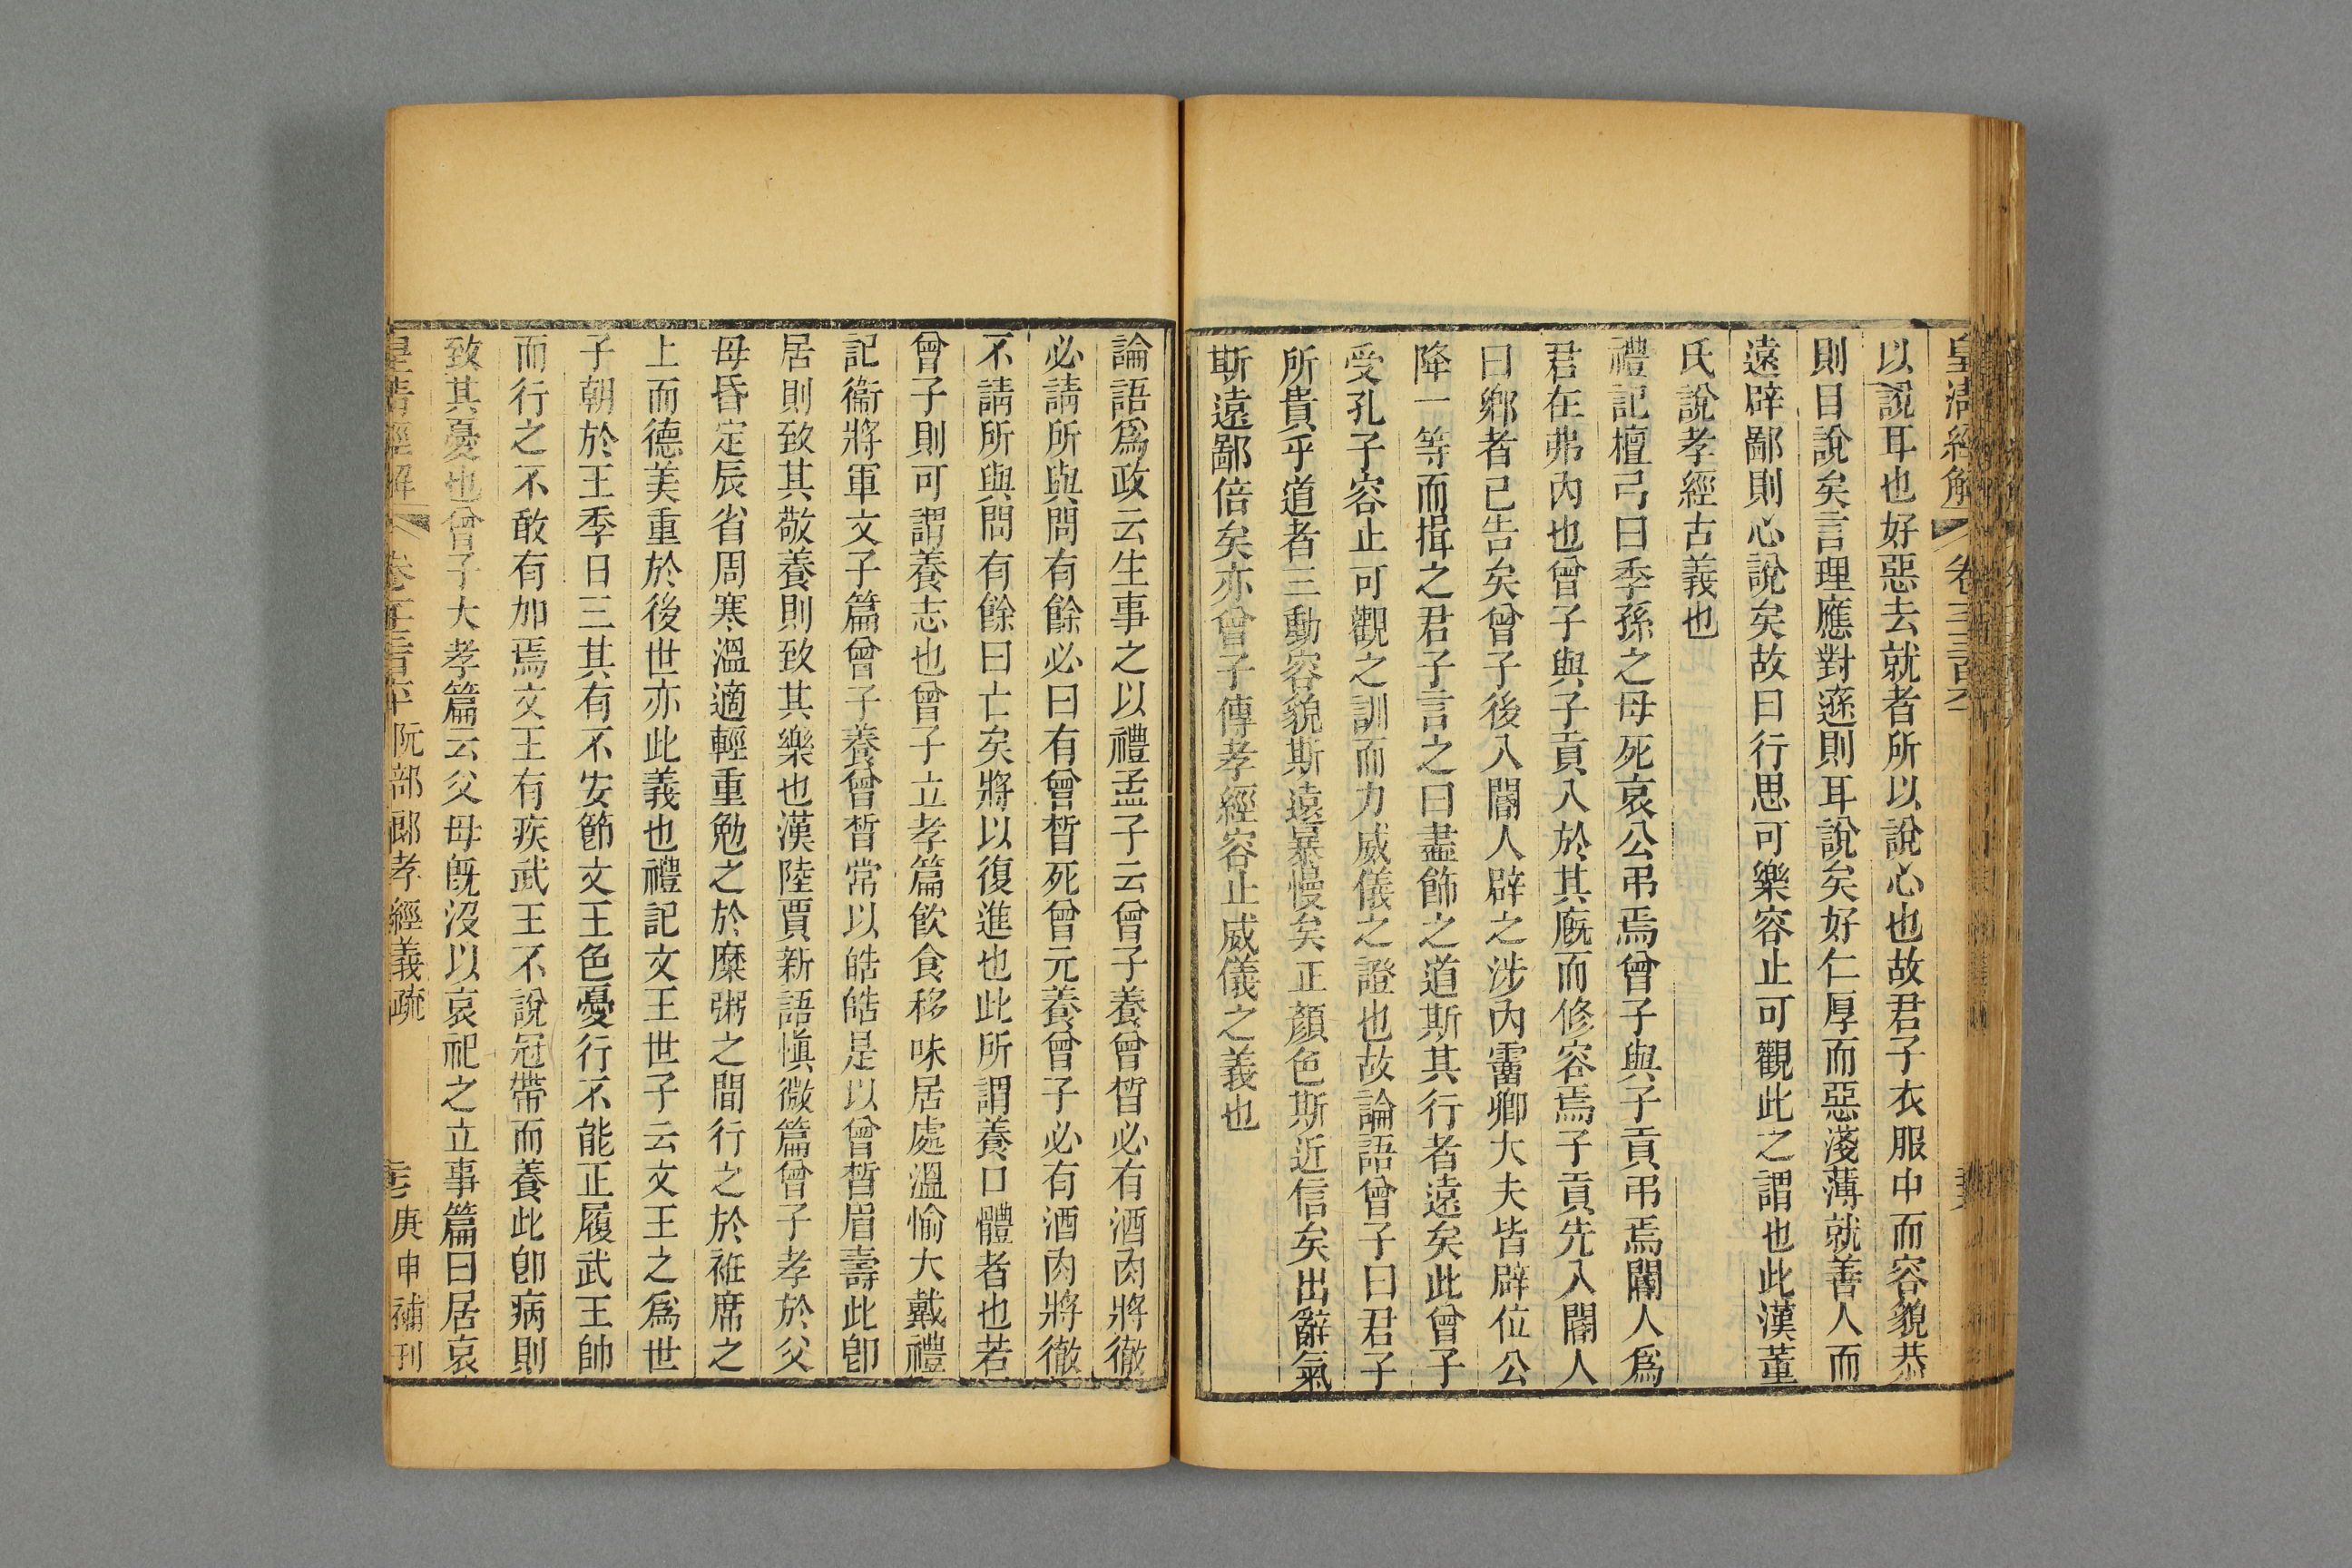 皇清經解
以說耳也好惡去就者所以說心也故君子衣服中而容貌恭
則目說矣言理應對遜則耳說矣好仁厚而惡淺薄就善人而
遠辟鄙則心說矣故曰行思可樂容止可觀此之謂也此漢董
氏說孝經古義也
禮記檀弓曰季孫之母死哀公弔焉曾子與子貢弔焉閽人爲
君在弗內也曾子與子貢入於其廄而修容焉子貢先入閽人
曰鄉者已告矣曾子後入閽人辟之涉內霤卿大夫皆辟位公
降一等而揖之君子言之曰盡飾之道斯其行者遠矣此曾子
受孔子容止可觀之訓而力威儀之證也故論語曾子曰君子
所貴乎道者三動容貌斯遠暴慢矣正顏色斯近信矣出辭氣
斯遠鄙倍矣亦曾子傳孝經容止威儀之義也
論語爲政云生事之以禮孟子云曾子養曾晳必有酒肉將徹
必請所與問有餘必曰有曾晳死曾元養曾子必有酒肉將徹
不請所與問有餘曰亡矣將以復進也此所謂養口體者也若
曾子則可謂養志也曾子立孝篇飲食移味居處溫愉大戴禮
記衞將軍文子篇曾子養曾晳常以皓皓是以曾晳眉壽此卽
居則致其敬養則致其樂也漢陸賈新語愼微篇曾子孝於父
母昏定辰省周寒溫適輕重勉之於糜粥之間行之於袵席之
上而德美重於後世亦此義也禮記文王世子云文王之爲世
子朝於王季日三其有不安節文王色憂行不能正履武王帥
而行之不敢有加焉文王有疾武王不說冠帶而養此卽病則
致其憂也曾子大孝篇云父母旣沒以哀祀之立事篇曰居哀
皇清經解 阮部郞孝經義疏 庚申補刊